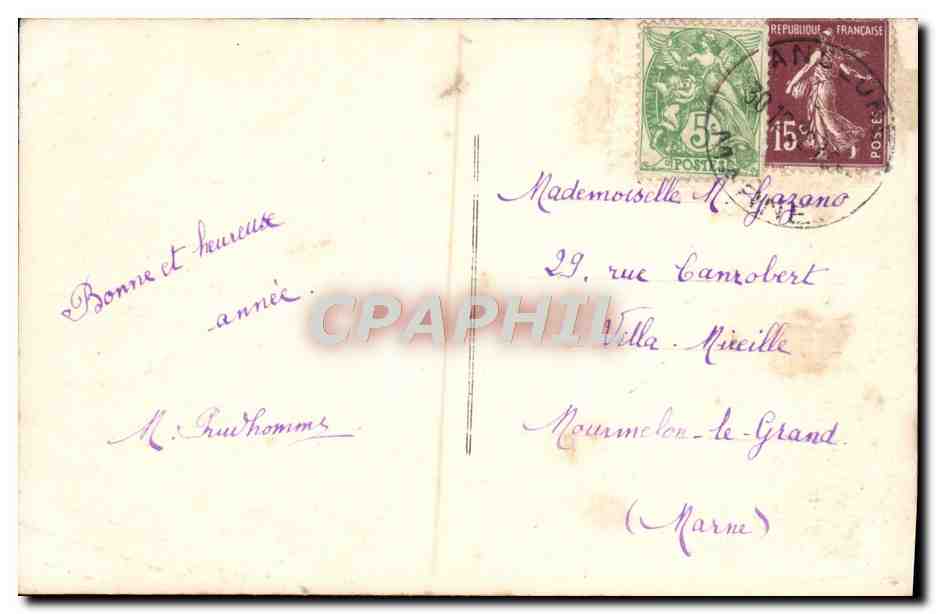 Bonne et heureuse
année.
M. Prudhomme
RÉPUBLIQUE FRANÇAISE
15c
POSTES
5c
POSTES
30.12
MARNE
Mademoiselle M. Gazano
29, rue Canrobert
Villa Mireille
Mourmelon-le-Grand.
(Marne)
CPAPHIL